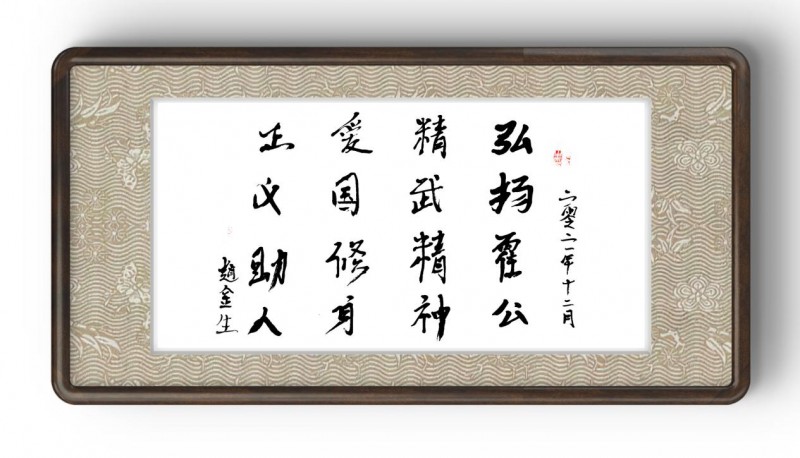 二零二一年十二月
弘扬霍公
精武精神
爱国修身
正义助人
赵金生